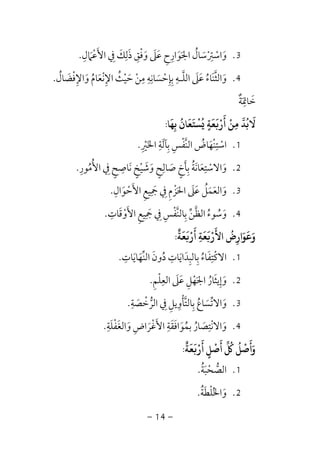 3. وَاسْتِرْسَالُ الجَوَارِحِ عَلَى وَفْقِ ذَلِكَ فِي الأَعْمَالِ.
4. وَالثَّنَاءُ عَلَى اللَّـهِ بِإِحْسَانِهِ مِنْ حَيْثُ الإِنْعَامُ وَالإِفْضَالُ.
خَاتِمَةٌ
لَابُدَّ مِنْ أَرْبَعَةٍ يُسْتَعَانُ بِهَا:
1. اسْتِنْهَاضُ النَّفْسِ بِآلَةِ الخَيْرِ.
2. وَالاسْتِعَانَةُ بِأَخٍ صَالِحٍ وَشَيْخٍ نَاصِحٍ فِي الأُمُورِ.
3. وَالعَمَلُ عَلَى الحَزْمِ فِي جَمِيعِ الأَحْوَالِ.
4. وَسُوءُ الظَّنِّ بِالنَّفْسِ فِي جَمِيعِ الأَوْقَاتِ.
وَعَوَارِضُ الأَرْبَعَةِ أَرْبَعَةٌ:
1. الاكْتِفَاءُ بِالبِدَايَاتِ دُونَ النِّهَايَاتِ.
2. وَإِيثَارُ الجَهْلِ عَلَى العِلْمِ.
3. وَالاتِّسَاعُ بِالتَّأْوِيلِ فِي الرُّخْصَةِ.
4. وَالانْتِصَارُ بِمُوَافَقَةِ الأَغْرَاضِ وَالغَفْلَةِ.
وَأَصْلُ كُلِّ أَصْلٍ أَرْبَعَةٌ:
1. الصُّحْبَةُ.
2. وَالخُلْطَةُ.
- 14 -